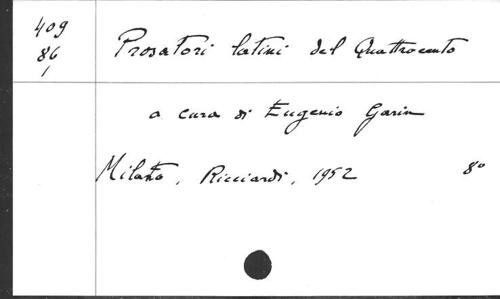 409
86
1
Prosatori latini del Quattrocento
a cura di Eugenio Garin
Milano, Ricciardi, 1952 8º